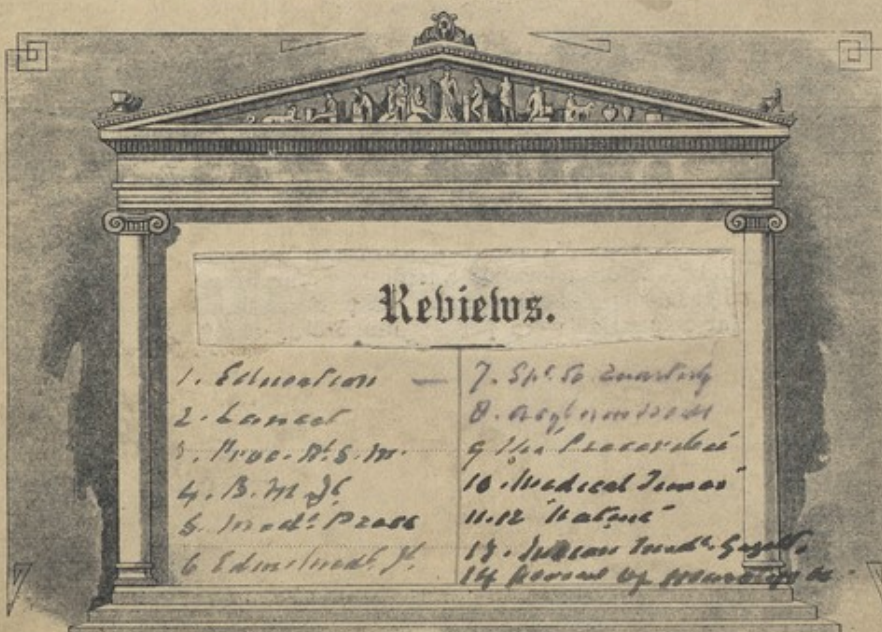 Reviews.
1. Education —
2. Lancet
3. Proc. Rl. S. M.
4. B. M. Jl
5. Medl. Press
6 Edin. Medl. Jl.
7. Spt. Quarterly
8.
9 The Prescriber
10. Medical Times
11.12 "Nature"
13. Indian Medl. Gazette
14 Journal of